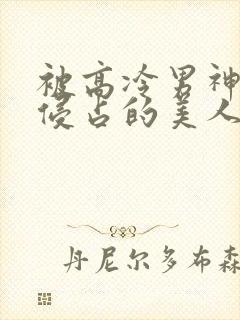 被高冷男神
侵占的美人
丹尼尔多布森